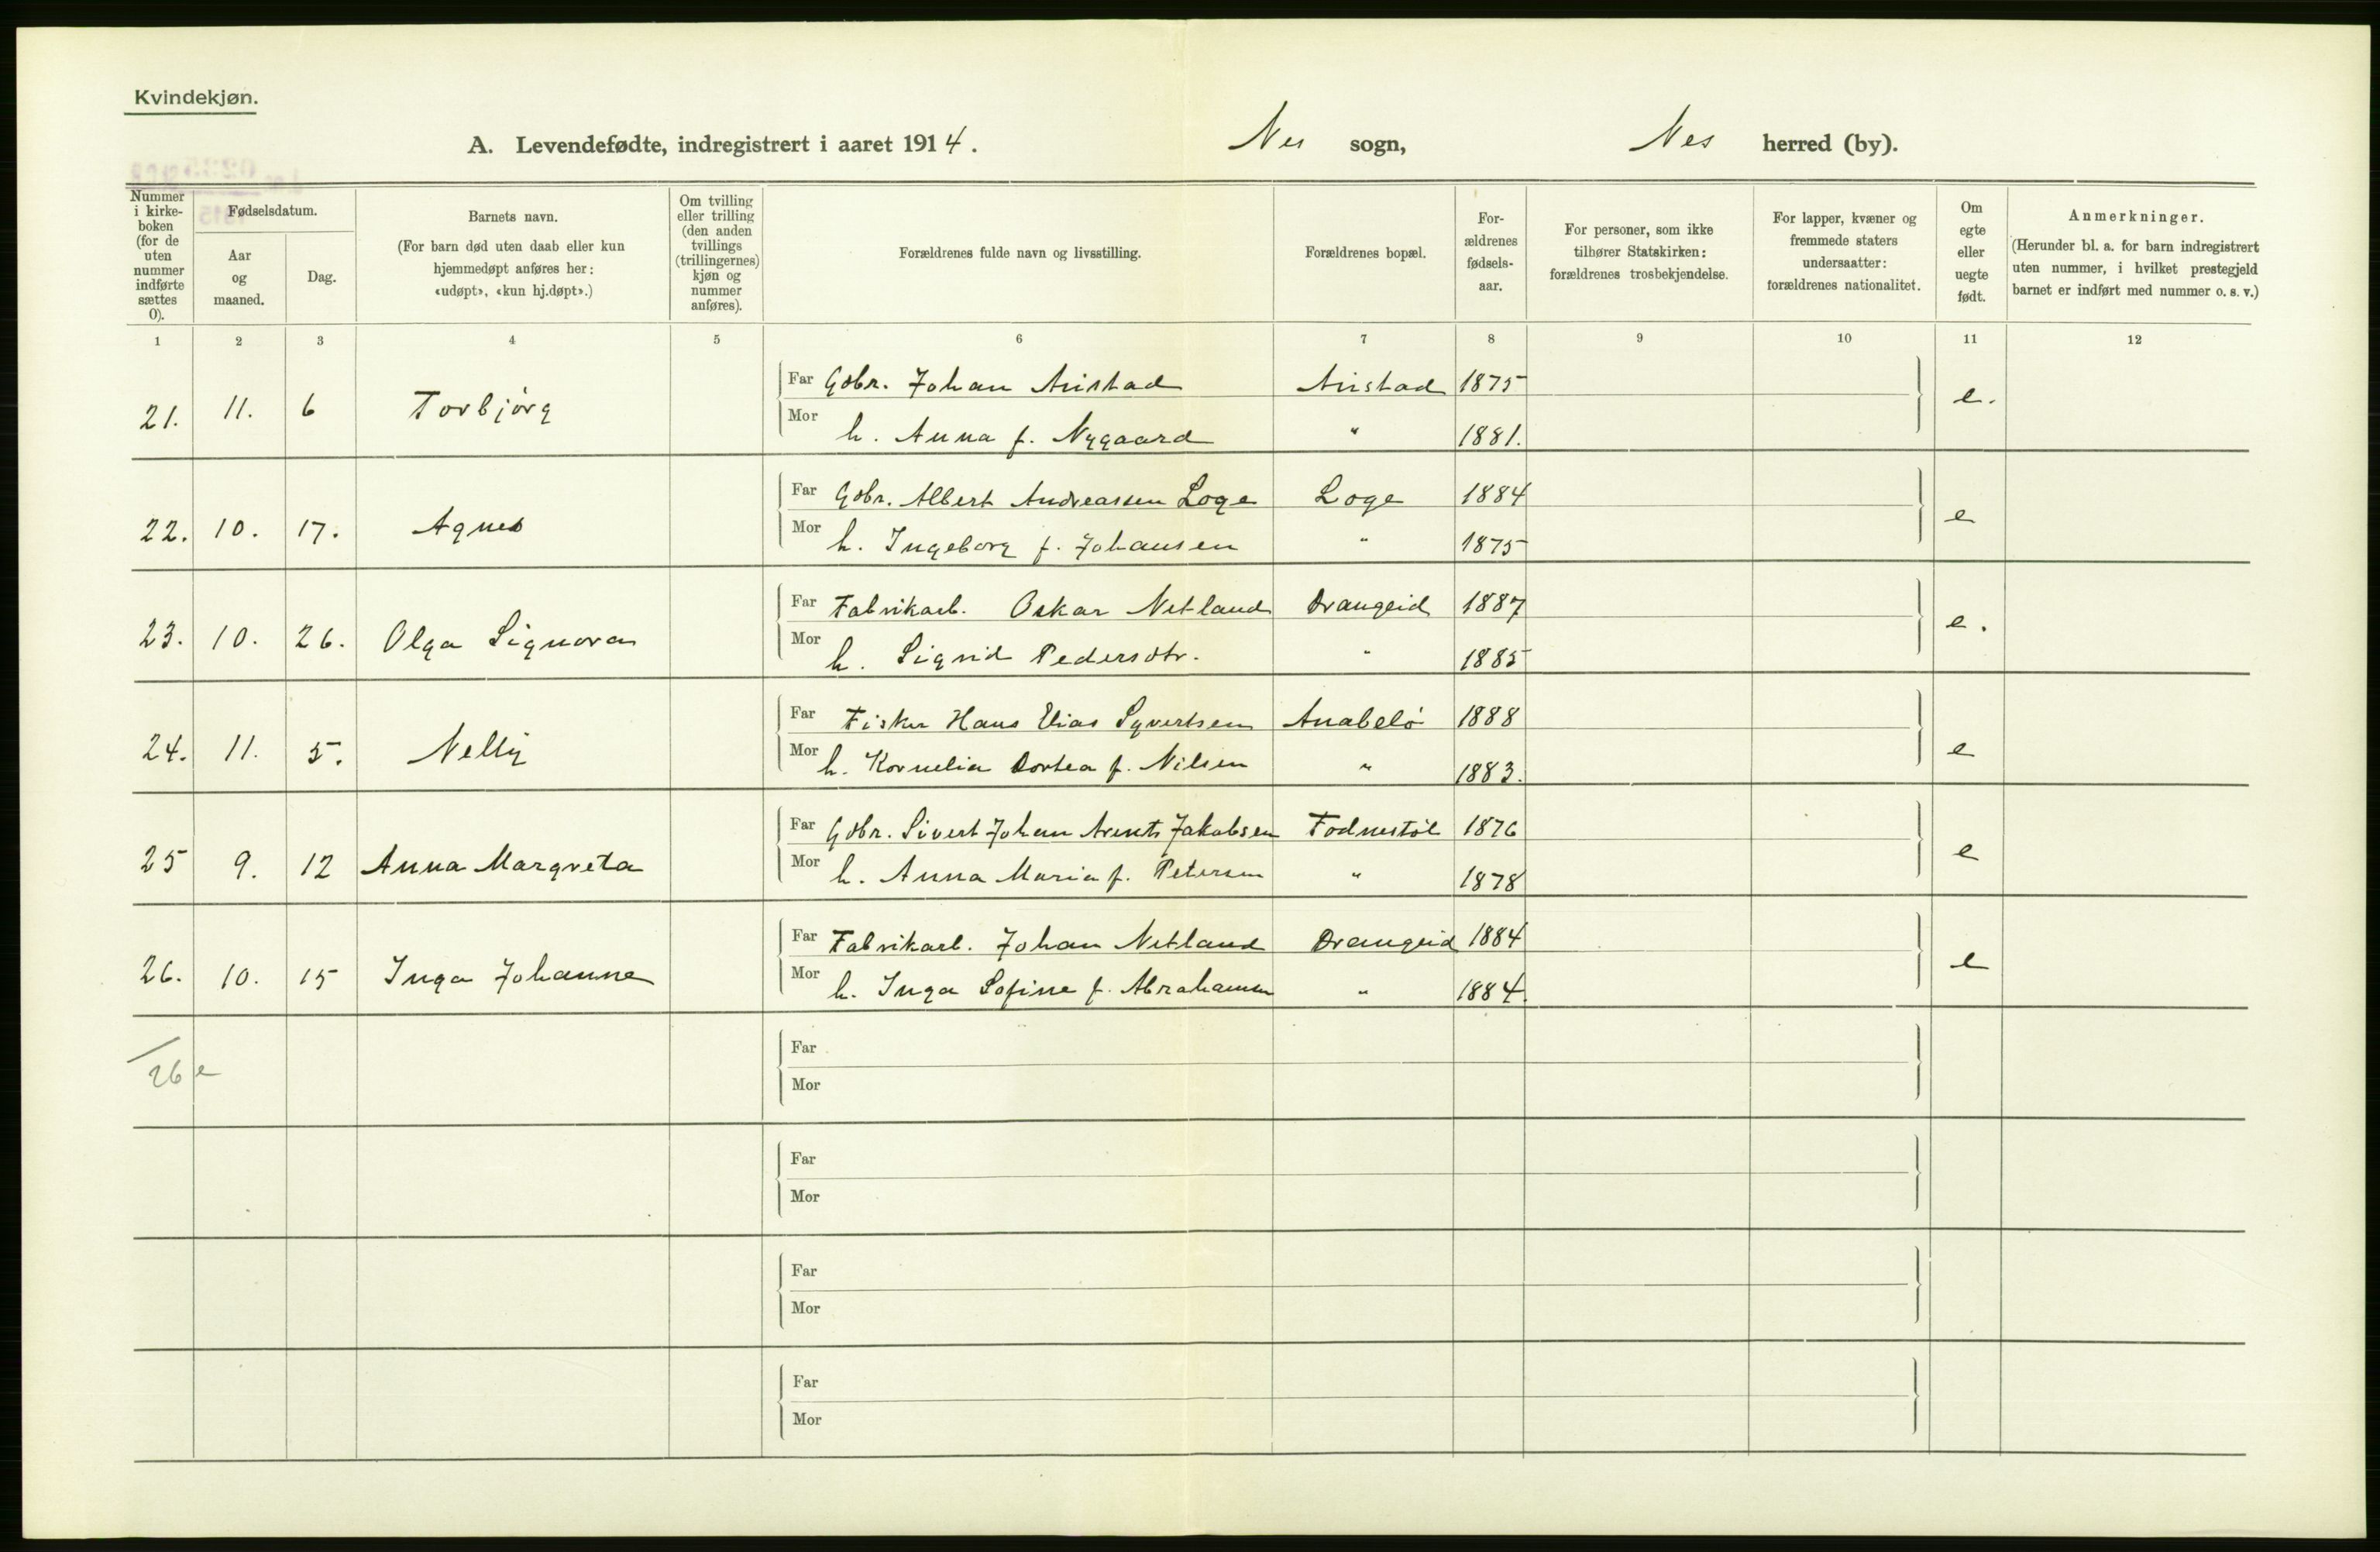 Kvindekjøn.
A. Levendefødte, indregistrert i aaret 1914. Nes sogn, Nes herred (by).
Nummer i kirke- boken (for de uten nummer indførte sættes 0).
Fødselsdatum.
Aar og maaned.
Dag.
Barnets navn.
(For barn død uten daab eller kun hjemmedøpt anføres her: «udøpt», «kun hj.døpt».)
Om tvilling eller trilling (den anden tvillings (trillingernes) kjøn og nummer anføres).
Forældrenes fulde navn og livsstilling.
Forældrenes bopæl.
For- ældrenes fødsels- aar.
For personer, som ikke tilhører Statskirken: forældrenes trosbekjendelse.
For lapper, kvæner og fremmede staters undersaatter: forældrenes nationalitet.
Om egte eller uegte født.
Anmerkninger.
(Herunder bl. a. for barn indregistrert uten nummer, i hvilket prestegjeld barnet er indført med nummer o. s. v.)
1 2 3 4 5 6 7 8 9 10 11 12
Far Gdbr. Johan 1875
21. 11. 6 Torbjörg e.
Mor h. Anna f. Nygaard " 1881.
Far Gdbr. Albert Andreassen Loge Loge 1884
22. 10. 17. Agnes e
Mor h. Ingeborg f. Johansen " 1875
Far Fabrikarb. Oskar Netland Drangeid 1887
23. 10. 26. Olga Signora e.
Mor h. Sigrid Pedersdtr. " 1885
Far Fisker Hans Elias Syvertsen Anabelö 1888
24. 11. 5. Nelly e
Mor h. Kornelia Dortea f. Nilsen " 1883.
Far Gdbr. Sivert Johan Arents Jakobsen 1876
25 9. 12 Anna Margreta e
Mor h. Anna Maria f. Petersen " 1878
Far Fabrikarb. Johan Netland Drangeid 1884
26. 10. 15 Inga Johanne e
Mor h. Inga Sofine f. Abrahamsen " 1884.
Far
26 e
Mor
Far
Mor
Far
Mor
Far
Mor